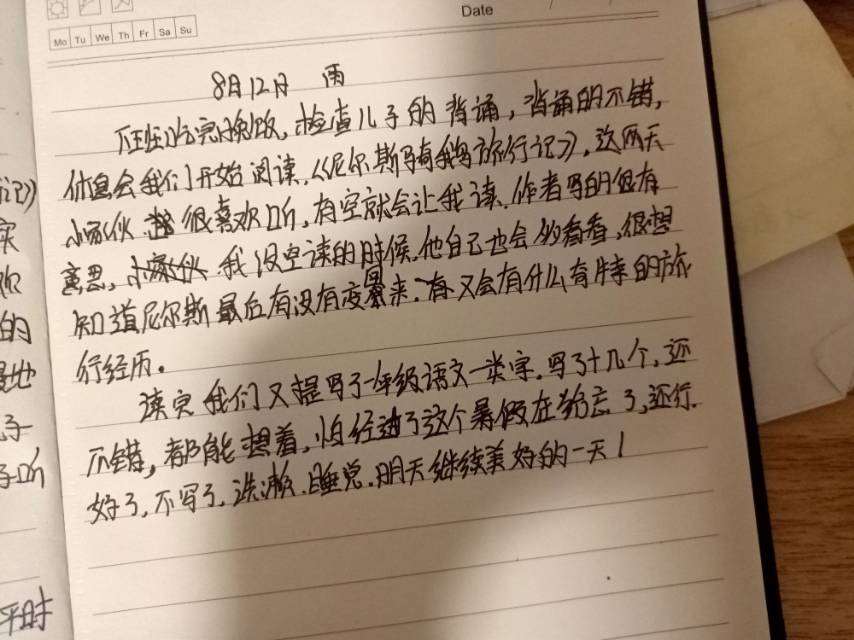 Date
Mo Tu We Th Fr Sa Su
8月12日 雨
吃完晚饭,检查儿子的背诵,背诵的不错,
休息会我们开始阅读《尼尔斯骑鹅旅行记》,这两天
小家伙很喜欢听,有空就会让我读.作者写的很有
意思,我没空读的时候.他自己也会看看,很想
知道尼尔斯最后有没有变回来.又会有什么有特的旅
行经历。
读完我们又提写了一年级语文一类字.写了十几个,还
不错,都能想着,怕经过了这个暑假在给忘了,还行.
好了,不写了,洗漱.睡觉.明天继续美好的一天!
记》
实
你
的
地
子
子听
平时